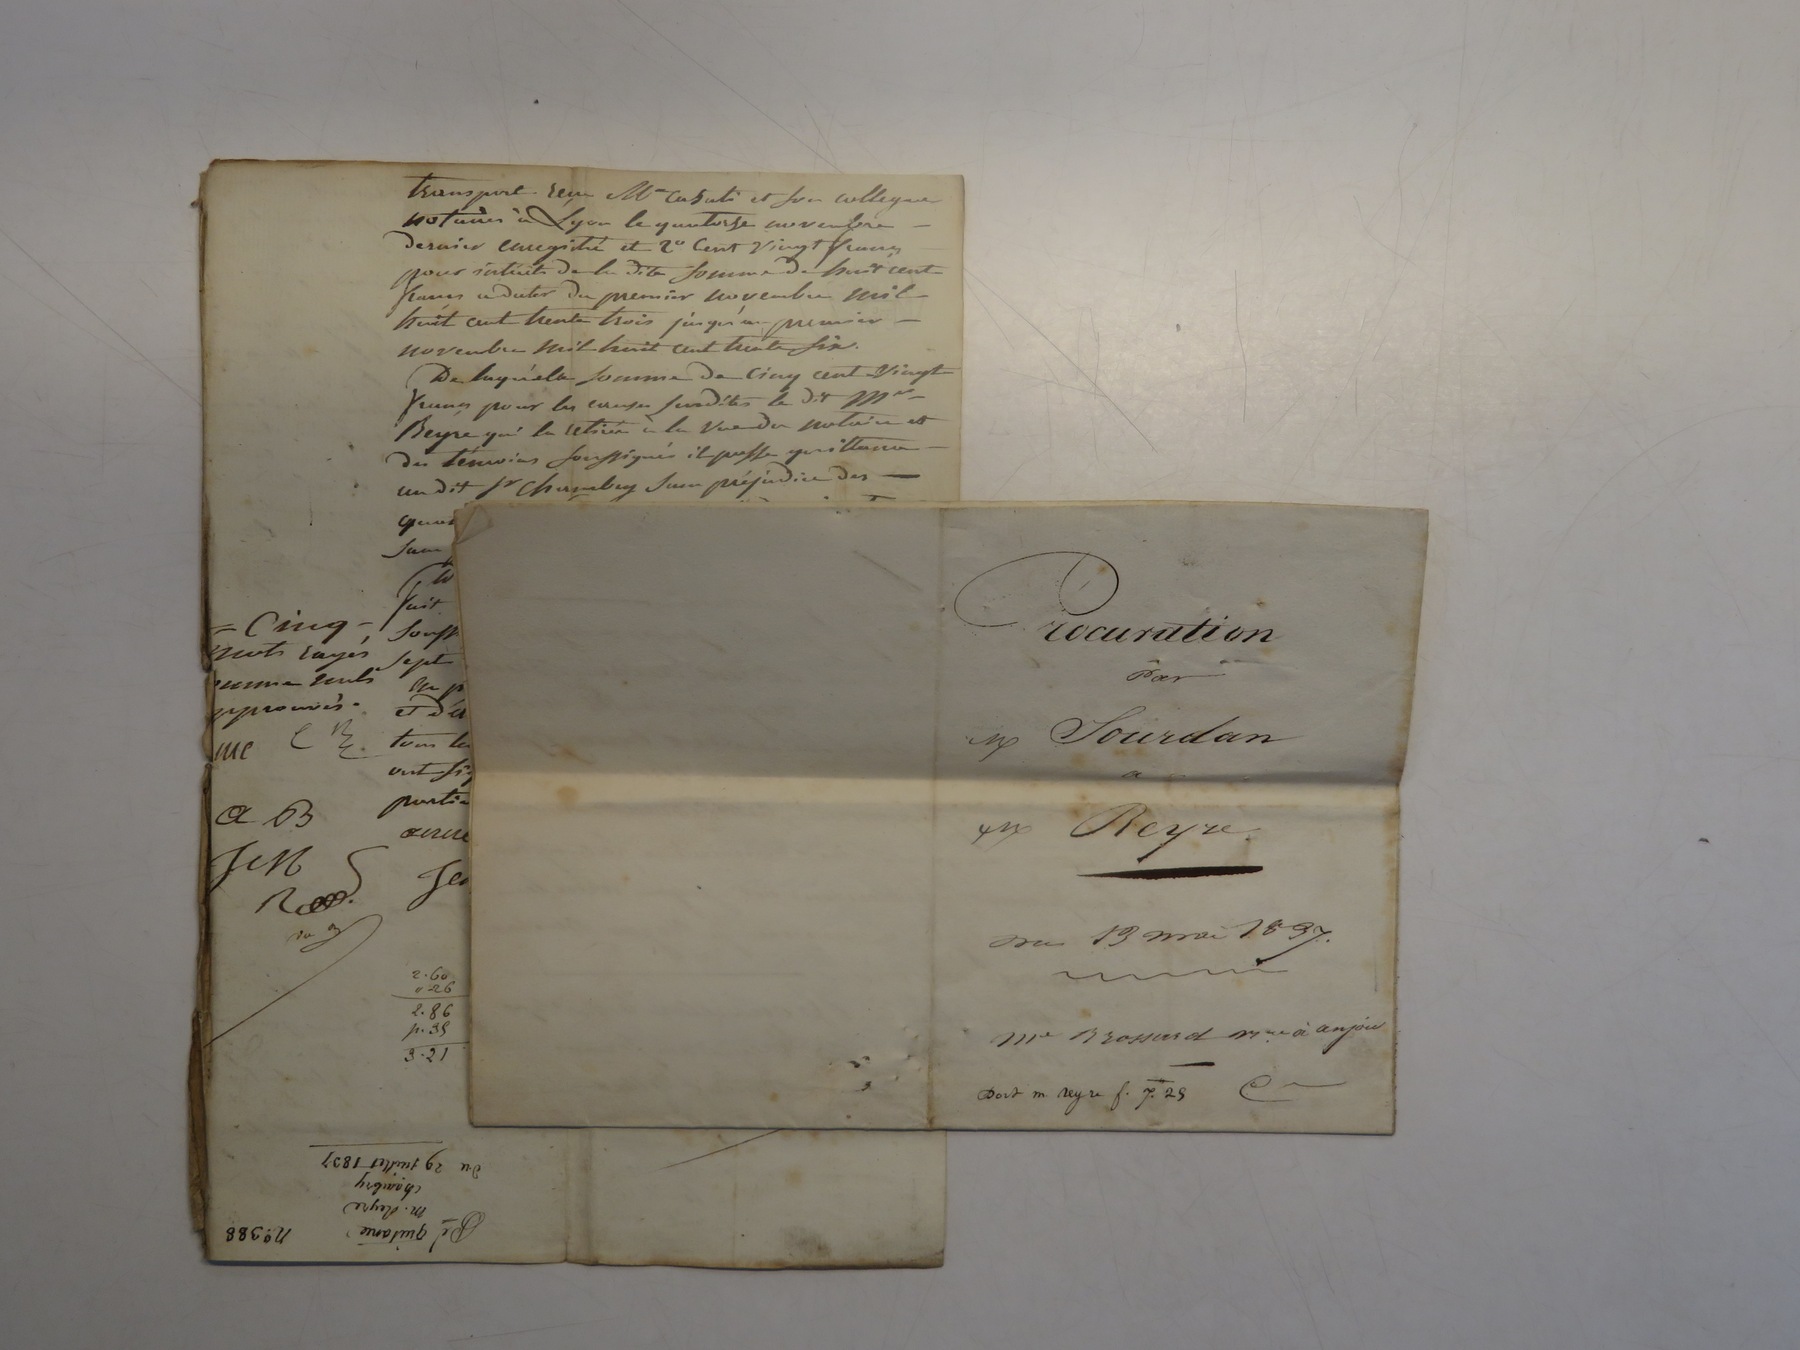 transport reçu Me Casati et son collegue
notaires à Lyon le quatorze novembre
dernier enregistré et 2o Cent Vingt francs
pour intérêts de la dite somme de huit cent
francs a dater du premier novembre mil
huit cent trente trois jusqu'au premier
novembre mil huit cent trente six.
De laquelle somme de Cinq cent Vingt
francs pour les causes susdites le dit Mr
Reyre qui la retirée à la Vue du notaire et
des témoins soussignés il passe quittance
au dit sr Chambry sans préjudice des
fait
sept
= Cinq =
mots rayés
comme nuls
approuvés.
tous
a B
JCM
2.60
0.26
2.86
p. 35
3.21
No 388
Rd quitance
M. Reyre
Chambry
Du 29 juillet 1837
Procuration
Par
M Jourdan
a
M Reyre
Du 13 mai 1837.
Me Brossard nre à anjou
Doit m reyre f. 7. 25